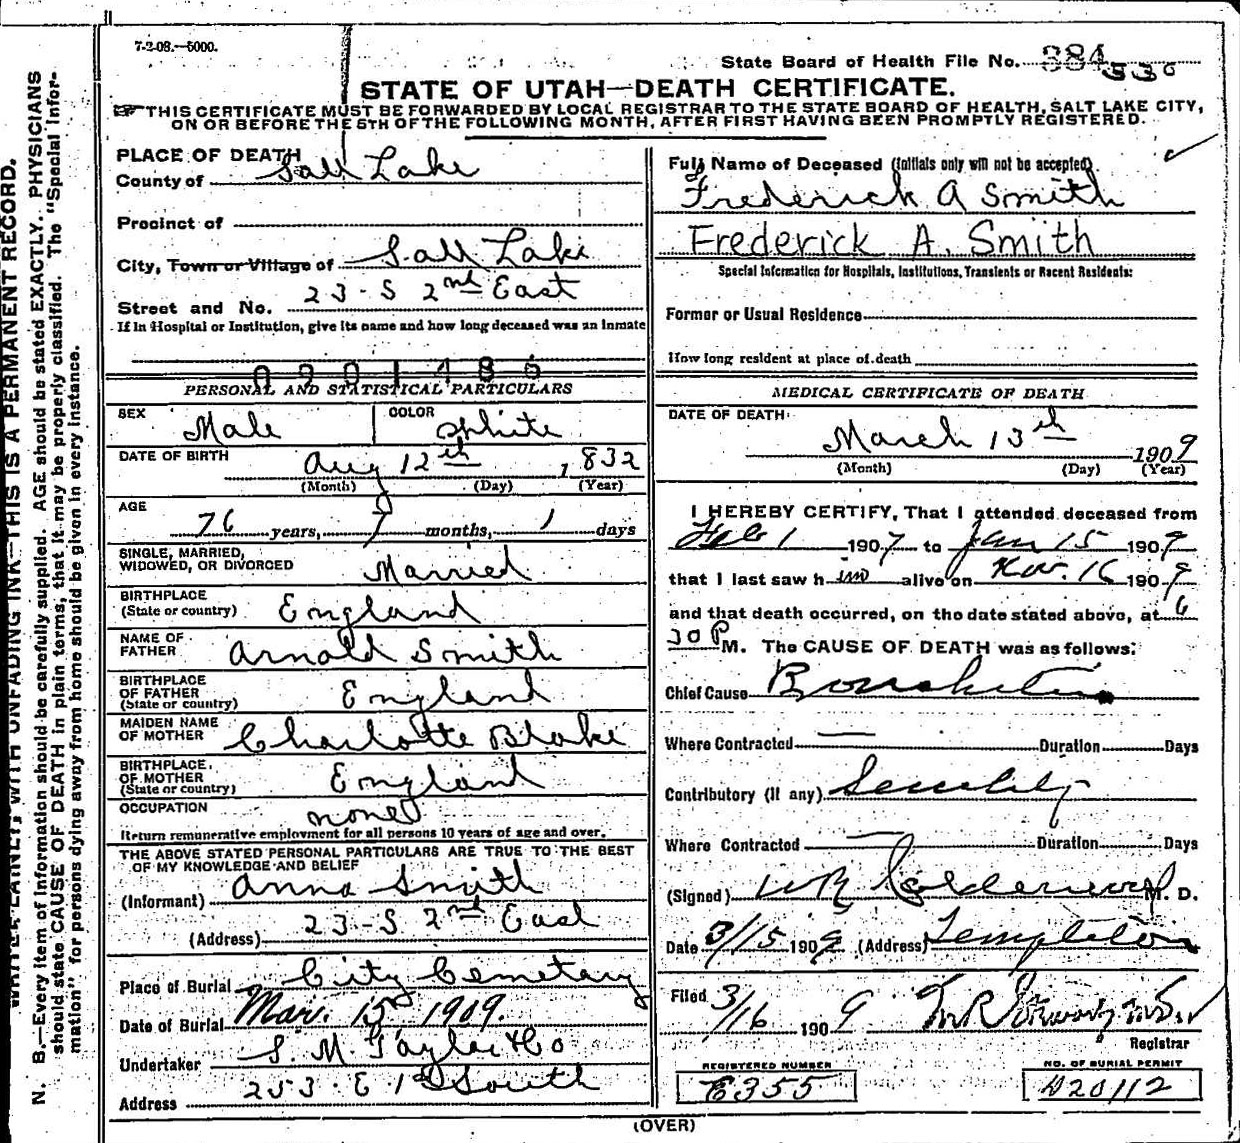 7-2-08.—5000.
State Board of Health File No. 384 330
STATE OF UTAH—DEATH CERTIFICATE.
THIS CERTIFICATE MUST BE FORWARDED BY LOCAL REGISTRAR TO THE STATE BOARD OF HEALTH, SALT LAKE CITY,
ON OR BEFORE THE 5TH OF THE FOLLOWING MONTH, AFTER FIRST HAVING BEEN PROMPTLY REGISTERED.
PLACE OF DEATH
County of Salt Lake
Precinct of
City, Town or Village of Salt Lake
Street and No. 23-S 2nd East
If in Hospital or Institution, give its name and how long deceased was an inmate
PERSONAL AND STATISTICAL PARTICULARS
SEX Male COLOR White
DATE OF BIRTH Aug 12th 1832
(Month) (Day) (Year)
AGE 76 years, 7 months, 1 days
SINGLE, MARRIED,
WIDOWED, OR DIVORCED Married
BIRTHPLACE
(State or country) England
NAME OF
FATHER Arnold Smith
BIRTHPLACE
OF FATHER
(State or country) England
MAIDEN NAME
OF MOTHER Charlotte Blake
BIRTHPLACE
OF MOTHER
(State or country) England
OCCUPATION none
Return remunerative employment for all persons 10 years of age and over.
THE ABOVE STATED PERSONAL PARTICULARS ARE TRUE TO THE BEST
OF MY KNOWLEDGE AND BELIEF
(Informant) Anna Smith
(Address) 23-S 2nd East
Place of Burial City Cemetery
Date of Burial Mar. 15 1909.
Undertaker S. M. Taylor & Co
Address 253-E 1st South
Full Name of Deceased (Initials only will not be accepted)
Frederick A Smith
Frederick A. Smith
Special Information for Hospitals, Institutions, Transients or Recent Residents:
Former or Usual Residence
How long resident at place of death
MEDICAL CERTIFICATE OF DEATH
DATE OF DEATH
March 13th 1909
(Month) (Day) (Year)
I HEREBY CERTIFY, That I attended deceased from
Feb 1 1907 to Jan 15 1909
that I last saw him alive on 16 1909
and that death occurred, on the date stated above, at 6
30 P M. The CAUSE OF DEATH was as follows:
Chief Cause Bronchitis
Where Contracted Duration Days
Contributory (If any) Senility
Where Contracted Duration Days
(Signed) M. D.
Date 3/15 1909 (Address) Templeton
Filed 3/16 1909
Registrar
REGISTERED NUMBER
E355
NO. OF BURIAL PERMIT
D20112
(OVER)
THIS IS A PERMANENT RECORD.
N. B.—Every item of information should be carefully supplied. AGE should be stated EXACTLY. PHYSICIANS
should state CAUSE OF DEATH in plain terms, that it may be properly classified. The "Special Infor-
mation" for persons dying away from home should be given in every instance.